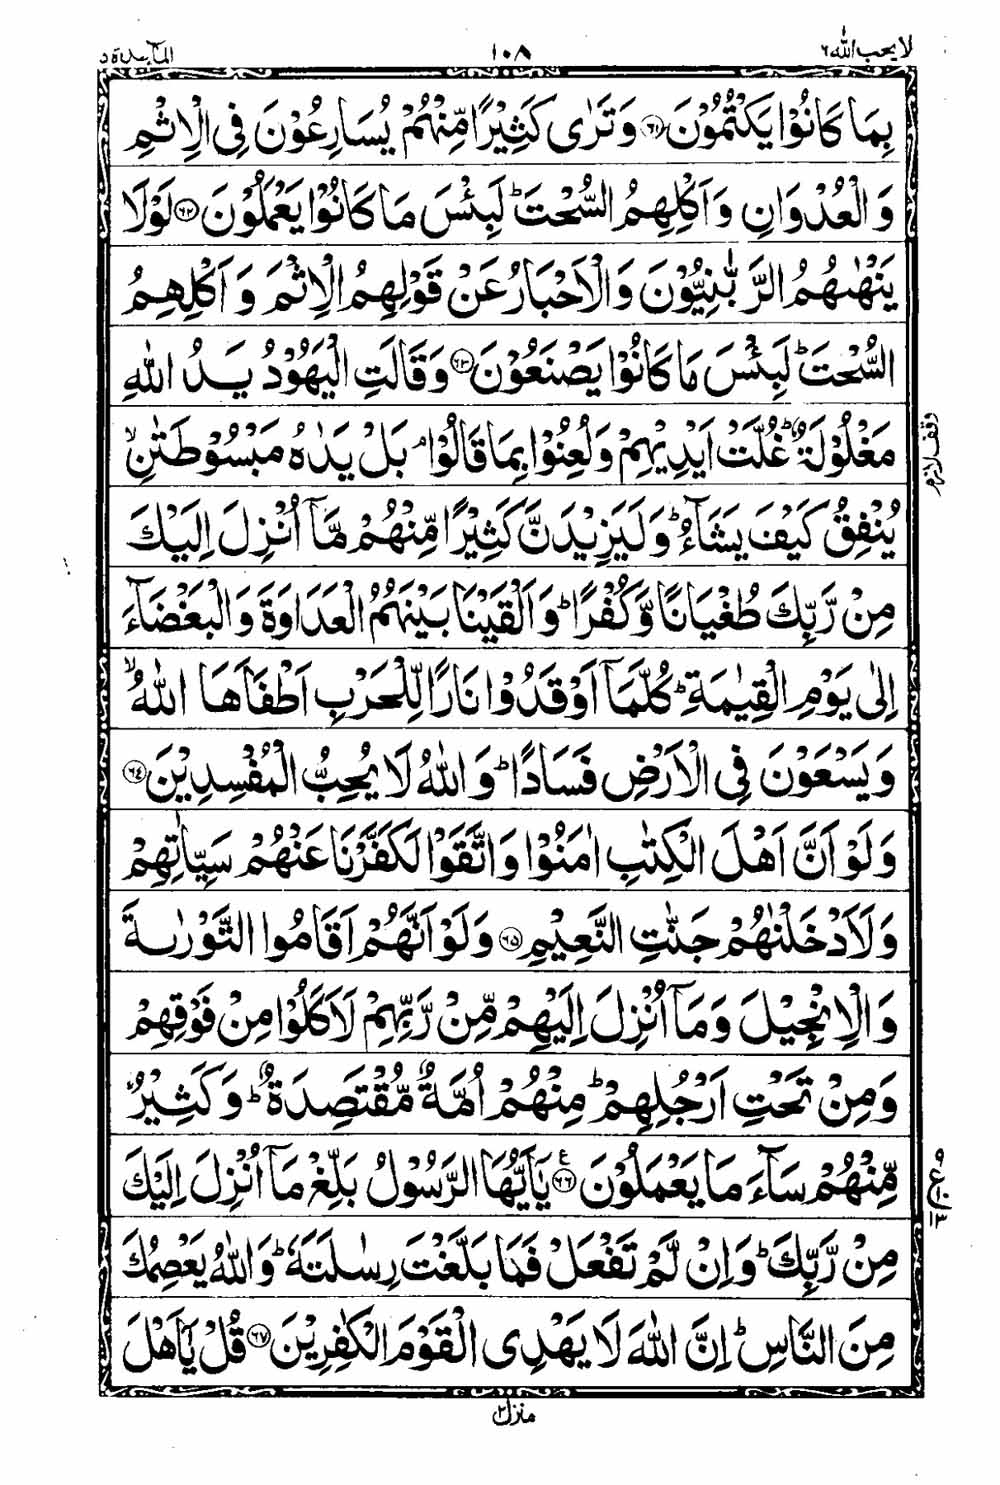 لا يحب الله ٦ ١٠٨ المآئدة ٥
بِمَا كَانُوْا يَكْتُمُوْنَ ﴿٦١﴾ وَتَرٰى كَثِيْرًا مِّنْهُمْ يُسَارِعُوْنَ فِى الْاِثْمِ
وَالْعُدْوَانِ وَاَكْلِهِمُ السُّحْتَ ؕ لَبِئْسَ مَا كَانُوْا يَعْمَلُوْنَ ﴿٦٢﴾ لَوْلَا
يَنْهٰىهُمُ الرَّبّٰنِيُّوْنَ وَالْاَحْبَارُ عَنْ قَوْلِهِمُ الْاِثْمَ وَاَكْلِهِمُ
السُّحْتَ ؕ لَبِئْسَ مَا كَانُوْا يَصْنَعُوْنَ ﴿٦٣﴾ وَقَالَتِ الْيَهُوْدُ يَدُ اللّٰهِ
مَغْلُوْلَةٌ ؕ غُلَّتْ اَيْدِيْهِمْ وَلُعِنُوْا بِمَا قَالُوْا ۘ بَلْ يَدٰهُ مَبْسُوْطَتٰنِ ۙ
وقف لازم
يُنْفِقُ كَيْفَ يَشَآءُ ؕ وَلَيَزِيْدَنَّ كَثِيْرًا مِّنْهُمْ مَّاۤ اُنْزِلَ اِلَيْكَ
مِنْ رَّبِّكَ طُغْيَانًا وَّكُفْرًا ؕ وَاَلْقَيْنَا بَيْنَهُمُ الْعَدَاوَةَ وَالْبَغْضَآءَ
اِلٰى يَوْمِ الْقِيٰمَةِ ؕ كُلَّمَاۤ اَوْقَدُوْا نَارًا لِّلْحَرْبِ اَطْفَاَهَا اللّٰهُ ۙ
وَيَسْعَوْنَ فِى الْاَرْضِ فَسَادًا ؕ وَاللّٰهُ لَا يُحِبُّ الْمُفْسِدِيْنَ ﴿٦٤﴾
وَلَوْ اَنَّ اَهْلَ الْكِتٰبِ اٰمَنُوْا وَاتَّقَوْا لَكَفَّرْنَا عَنْهُمْ سَيِّاٰتِهِمْ
وَلَاَدْخَلْنٰهُمْ جَنّٰتِ النَّعِيْمِ ﴿٦٥﴾ وَلَوْ اَنَّهُمْ اَقَامُوا التَّوْرٰىةَ
وَالْاِنْجِيْلَ وَمَاۤ اُنْزِلَ اِلَيْهِمْ مِّنْ رَّبِّهِمْ لَاَكَلُوْا مِنْ فَوْقِهِمْ
وَمِنْ تَحْتِ اَرْجُلِهِمْ ؕ مِنْهُمْ اُمَّةٌ مُّقْتَصِدَةٌ ؕ وَكَثِيْرٌ
مِّنْهُمْ سَآءَ مَا يَعْمَلُوْنَ ﴿٦٦﴾ ع يٰۤاَيُّهَا الرَّسُوْلُ بَلِّغْ مَاۤ اُنْزِلَ اِلَيْكَ
مِنْ رَّبِّكَ ؕ وَاِنْ لَّمْ تَفْعَلْ فَمَا بَلَّغْتَ رِسٰلَتَهٗ ؕ وَاللّٰهُ يَعْصِمُكَ
مِنَ النَّاسِ ؕ اِنَّ اللّٰهَ لَا يَهْدِى الْقَوْمَ الْكٰفِرِيْنَ ﴿٦٧﴾ قُلْ يٰۤاَهْلَ
منزل ٢